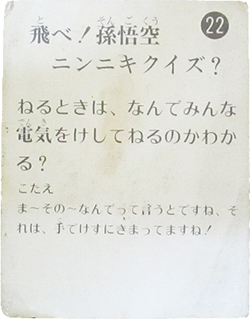 22
飛べ!孫悟空
ニンニキクイズ?
ねるときは、なんでみんな
電気をけしてねるのかわか
る?
こたえ
ま〜その〜なんでって言うとですね、そ
れは、手でけすにきまってますね!